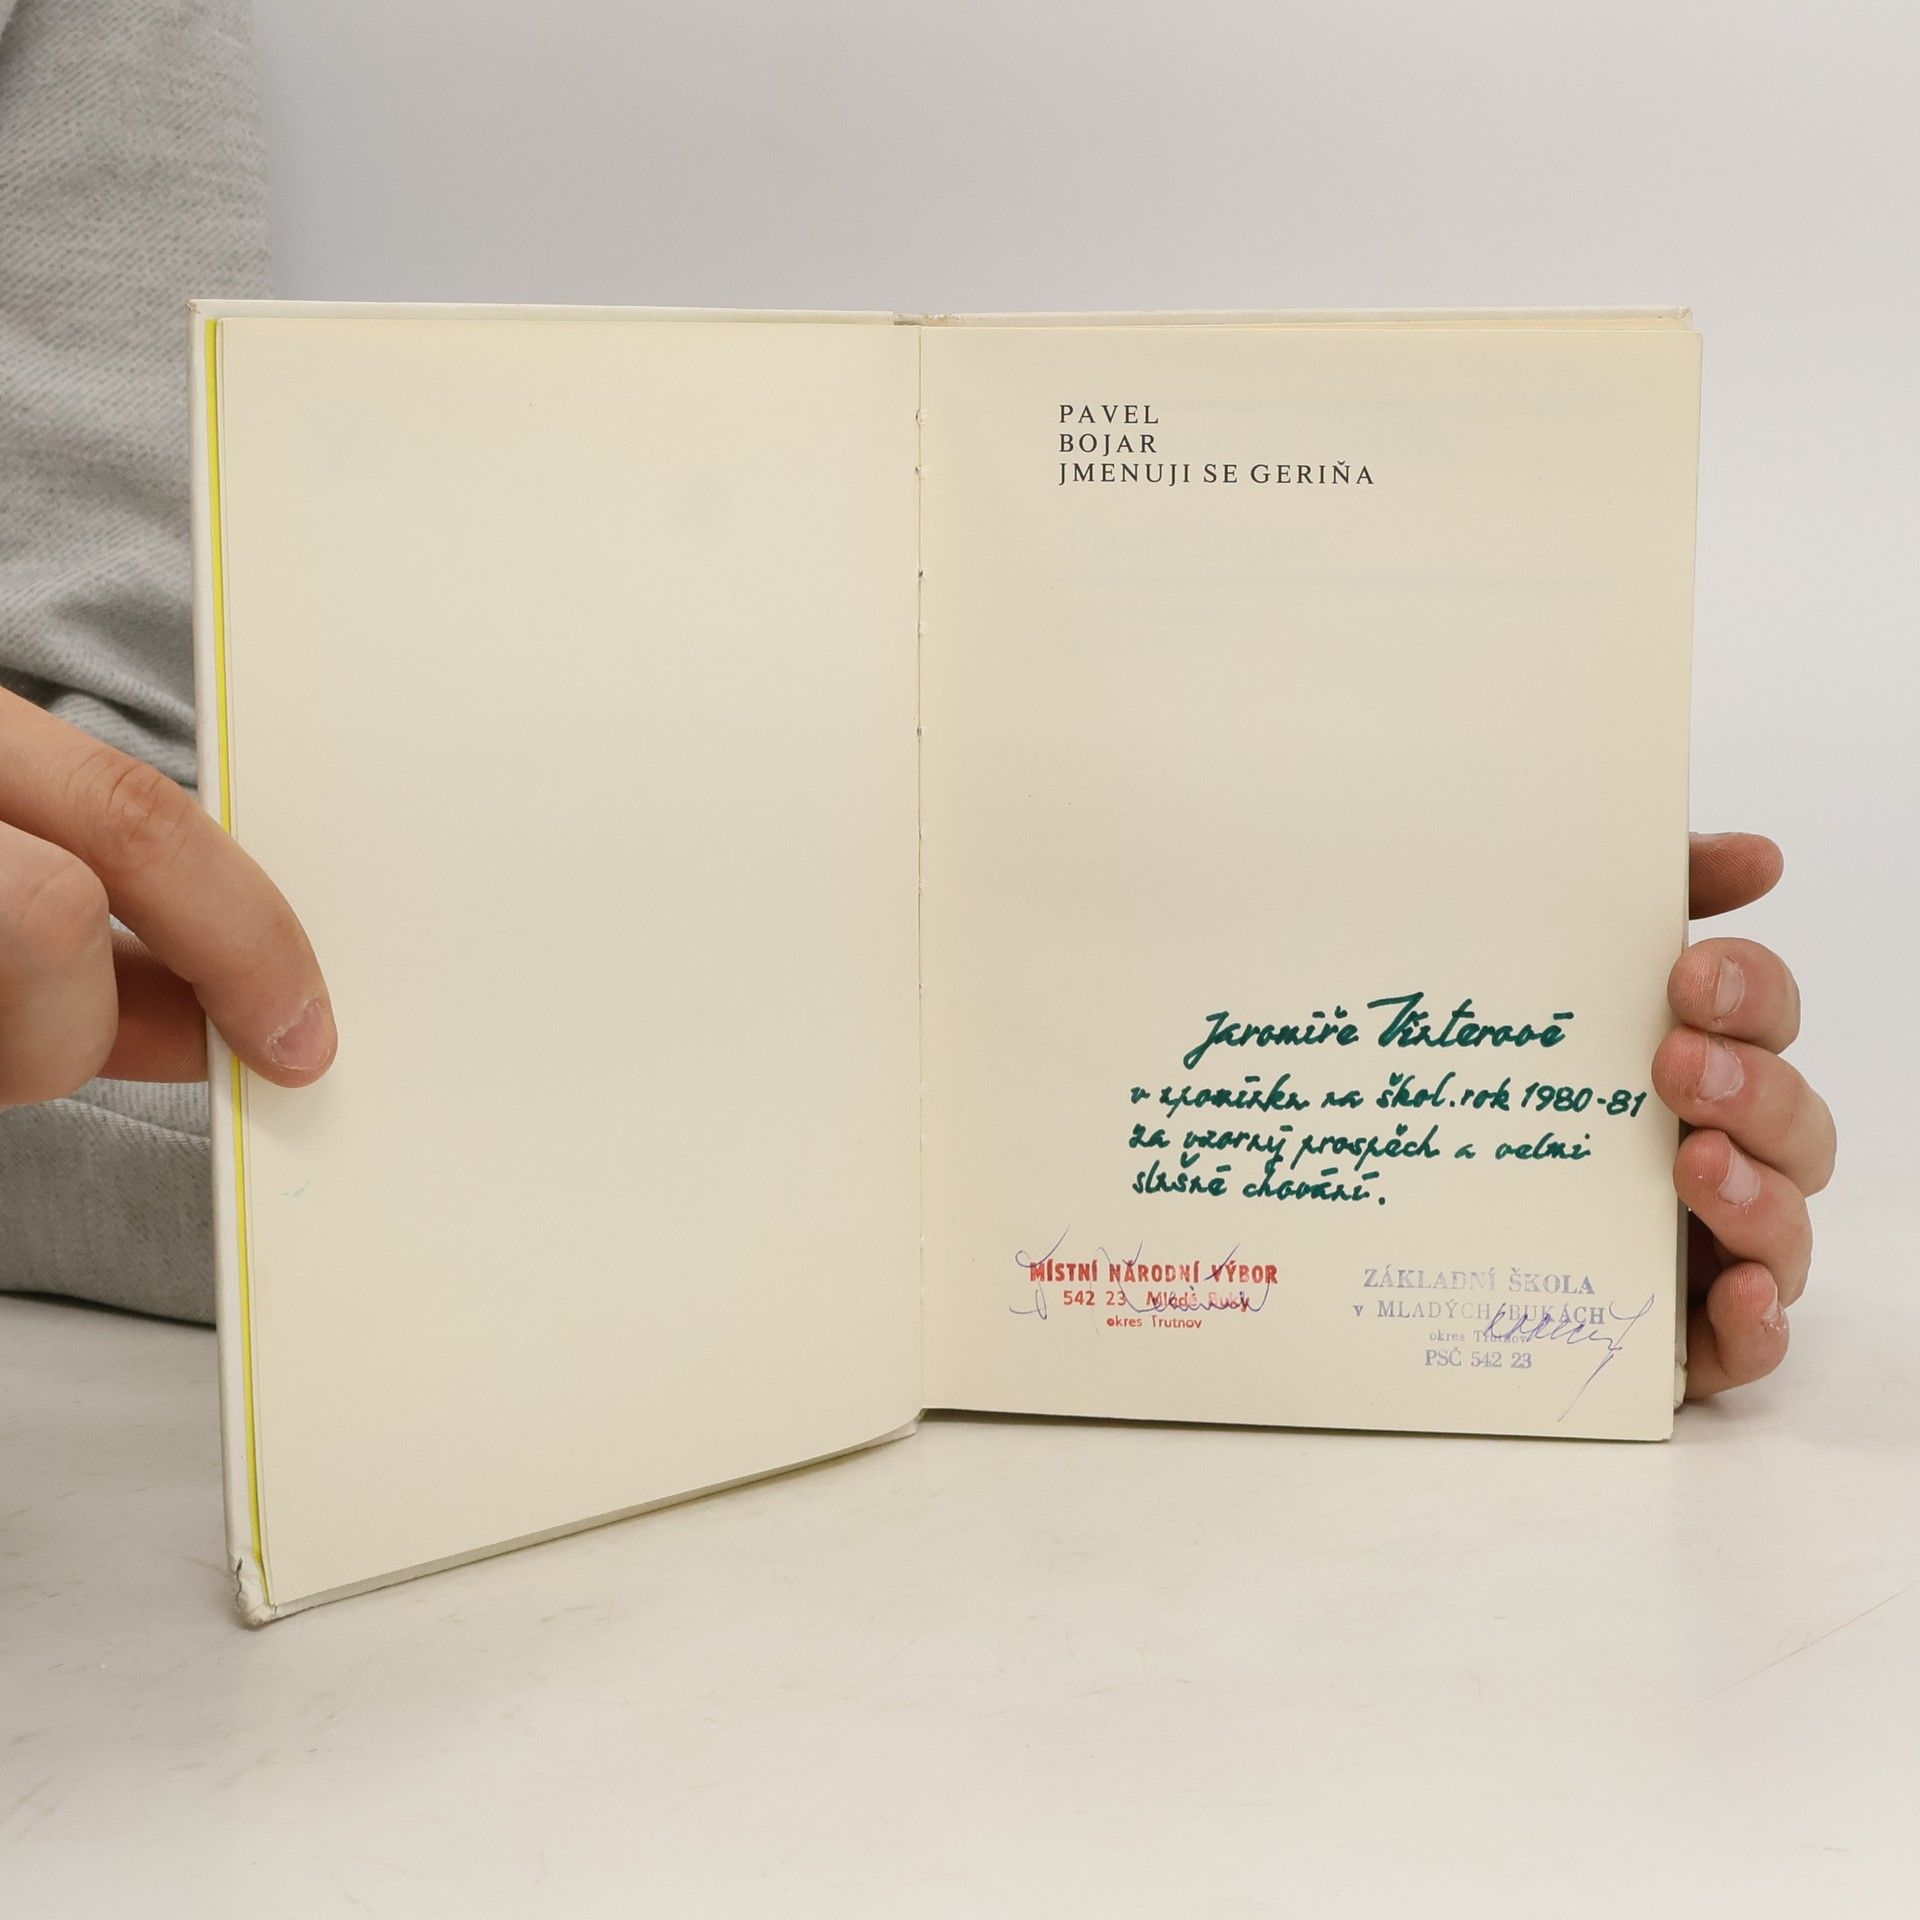 PAVEL
BOJAR
JMENUJI SE GERIŇA
Jaromíře Vinterové
v zpomínku na škol. rok 1980-81
za vzorný prospěch a velmi
slušné chování.
MÍSTNÍ NÁRODNÍ VÝBOR
542 23 Mladé Buky
okres Trutnov
ZÁKLADNÍ ŠKOLA
v MLADÝCH BUKÁCH
okres Trutnov
PSČ 542 23